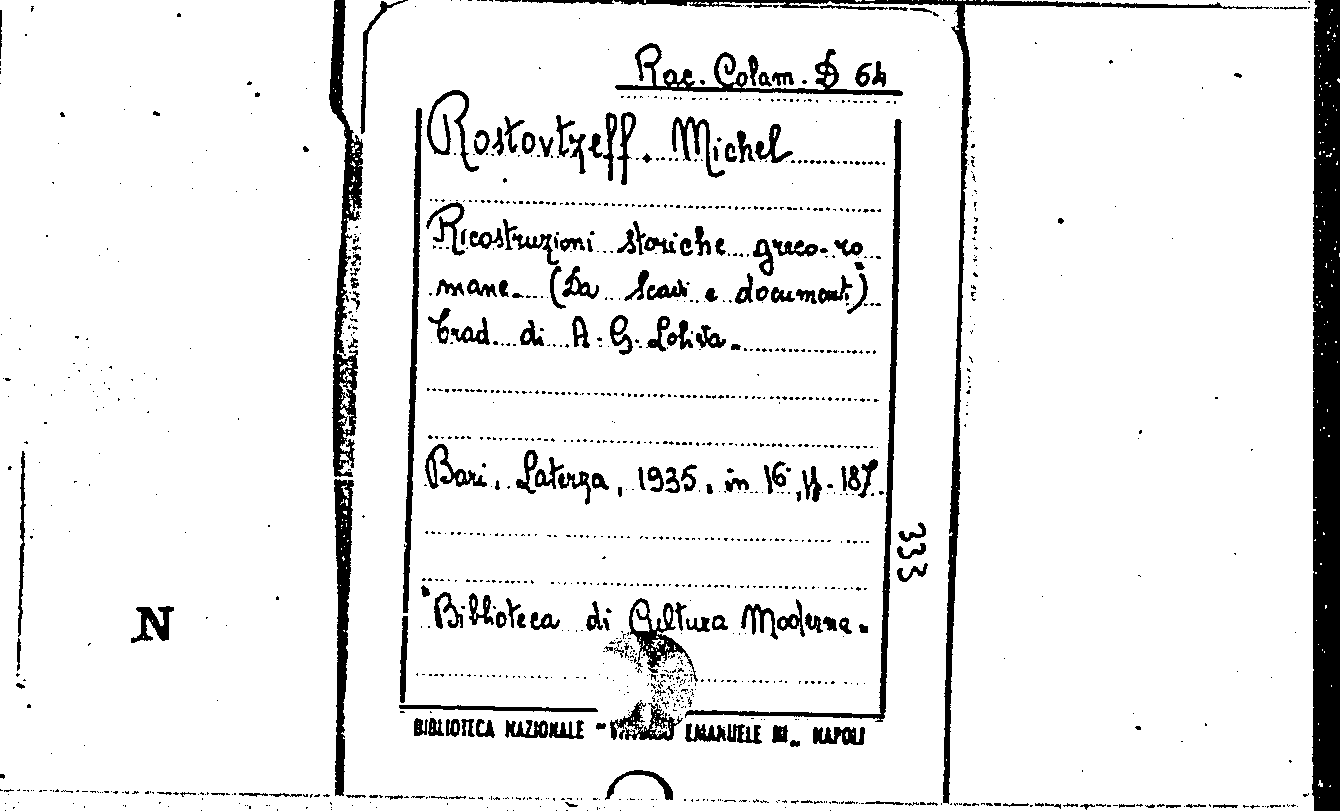 Rac. Colam. D 64
Rostovtzeff. Michel
Ricostruzioni storiche greco-ro
mane. (Da Scavi e documenti)
Trad. di A. G.
Bari, Laterza, 1935, in 16°, 187.
333
Biblioteca di Cultura Moderna.
N
BIBLIOTECA NAZIONALE "VITTORIO EMANUELE III„ NAPOLI